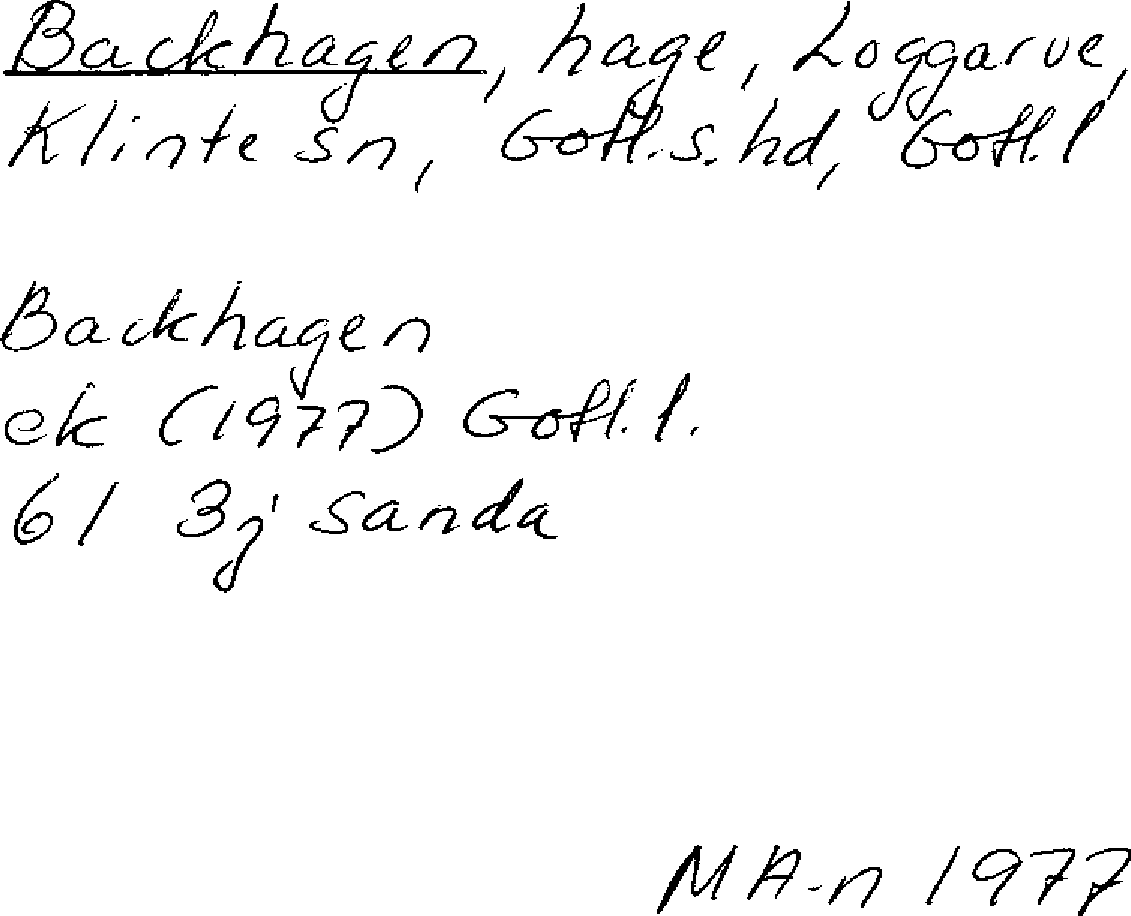 Backhagen, hage, Loggarve,
Klinte sn, Gotl.s.hd, Gotl.l
Backhagen
ek (1977) Gotl.l.
61 3j Sanda
MA-n 1977